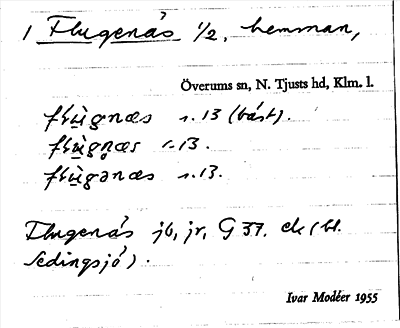 1 Flugenäs 1/2, hemman,
Överums sn, N. Tjusts hd, Klm. l.
flɯ̀genæs s. 13 (bäst).
flɯ̀gnæs s. 13.
flɯ̀gənæs s. 13.
Flugenäs jb, jr, G 37. ek (bl.
Sedingsjö).
Ivar Modéer 1955